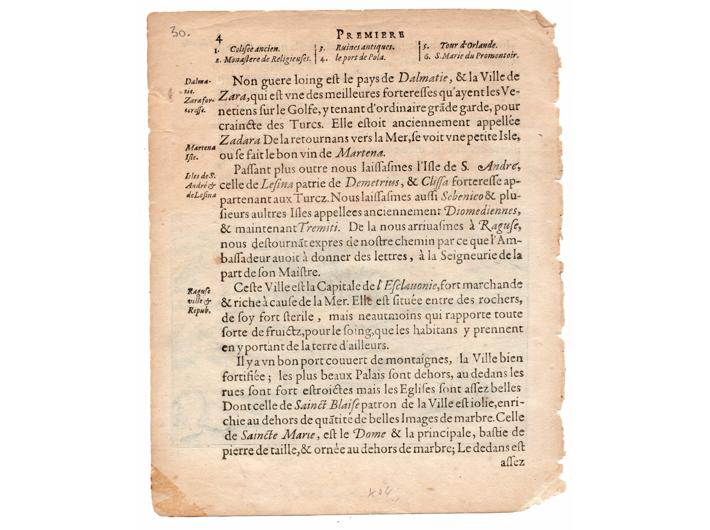 30.
4
PREMIERE
1. Colisée ancien. 3. Ruines antiques. 5. Tour d'Orlande.
2. Monastere de Religieuses. 4. le port de Pola. 6. S. Marie du Promontoir.
Dalma-
tie.
Zara for-
teresse.
Non guere loing est le pays de Dalmatie, & la Ville de
Zara, qui est vne des meilleures forteresses qu'ayent les Ve-
netiens sur le Golfe, y tenant d'ordinaire grãde garde, pour
craincte des Turcs. Elle estoit anciennement appellée
Zadara De la retournans vers la Mer, se voit vne petite Isle,
ou se fait le bon vin de Martena.
Martena
Isle.
Passant plus outre nous laissasmes l'Isle de S. André,
celle de Lesina patrie de Demetrius, & Clissa forteresse ap-
partenant aux Turcz. Nous laissasmes aussi Sebenico & plu-
sieurs aultres Isles appellees anciennement Diomediennes,
& maintenant Tremiti. De la nous arriuasmes à Raguse,
nous destournãt expres de nostre chemin par ce que l'Am-
bassadeur auoit à donner des lettres, à la Seigneurie de la
part de son Maistre.
Isles de S.
André &
de Lesina
Ceste Ville est la Capitale de l'Esclauonie, fort marchande
& riche à cause de la Mer. Elle est située entre des rochers,
de soy fort sterile, mais neautmoins qui rapporte toute
sorte de fruictz, pour le soing, que les habitans y prennent
en y portant de la terre d'ailleurs.
Raguse
ville &
Repub.
Il y a vn bon port couuert de montaignes, la Ville bien
fortifiée; les plus beaux Palais sont dehors, au dedans les
rues sont fort estroictes mais les Eglises sont assez belles
Dont celle de Sainct Blaise patron de la Ville est iolie, enri-
chie au dehors de quãtité de belles Images de marbre. Celle
de Saincte Marie, est le Dome & la principale, bastie de
pierre de taille, & ornée au dehors de marbre; Le dedans est
assez